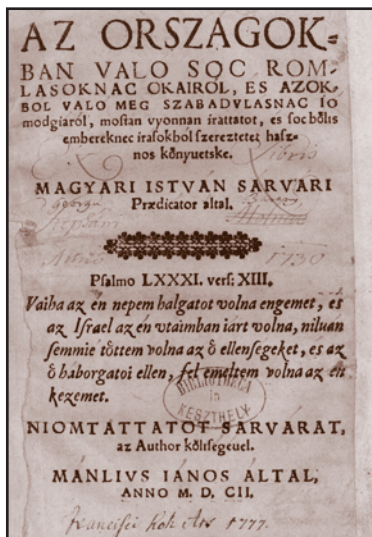 AZ ORSZAGOK-
BAN VALO SOC ROM-
LASOKNAC OKAIRÓL, ES AZOK-
BOL VALO MEG SZABADVLASNAC IO
modgiaról, mostan vyonnan irattatot, es soc bólts
embereknec irasokból szereztetet hasz-
nos kónyuetske.
Libris
MAGYARI ISTVÁN SARVÁRI
Prædicator altal.
Anno 1730
Psalmo LXXXI. vers: XIII.
Vaiha az én nepem halgatot volna engemet, es
az Israel az én vtaimban iárt volna, niluán
semmié tóttem volna az ó ellensegeket, es az
ó háborgatoi ellen, fel emeltem volna az én
kezemet.
BIBLIOTHECA
in
KESZTHELY
NIOMTATTATOT SARVÁRAT,
az Author kóltsegeuel.
MÁNLIVS IÁNOS ÁLTAL,
ANNO M. D. CII.
Francisci 1777.